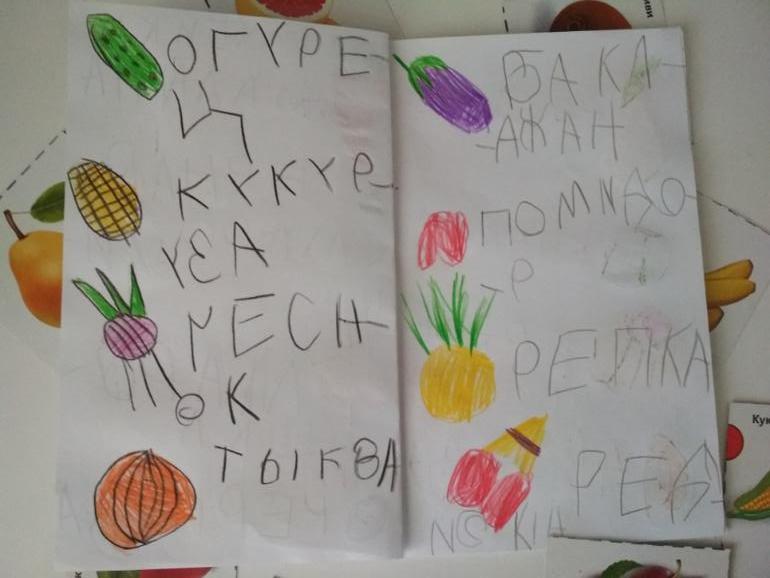 ОГУРЕ-
Ц
КУКУР-
УЗА
ЧЕСН-
ОК
ТЫКВА
БАКЛ-
-АЖАН
ПОМИДО-
-Р
РЕПКА
РЕД-
Кук